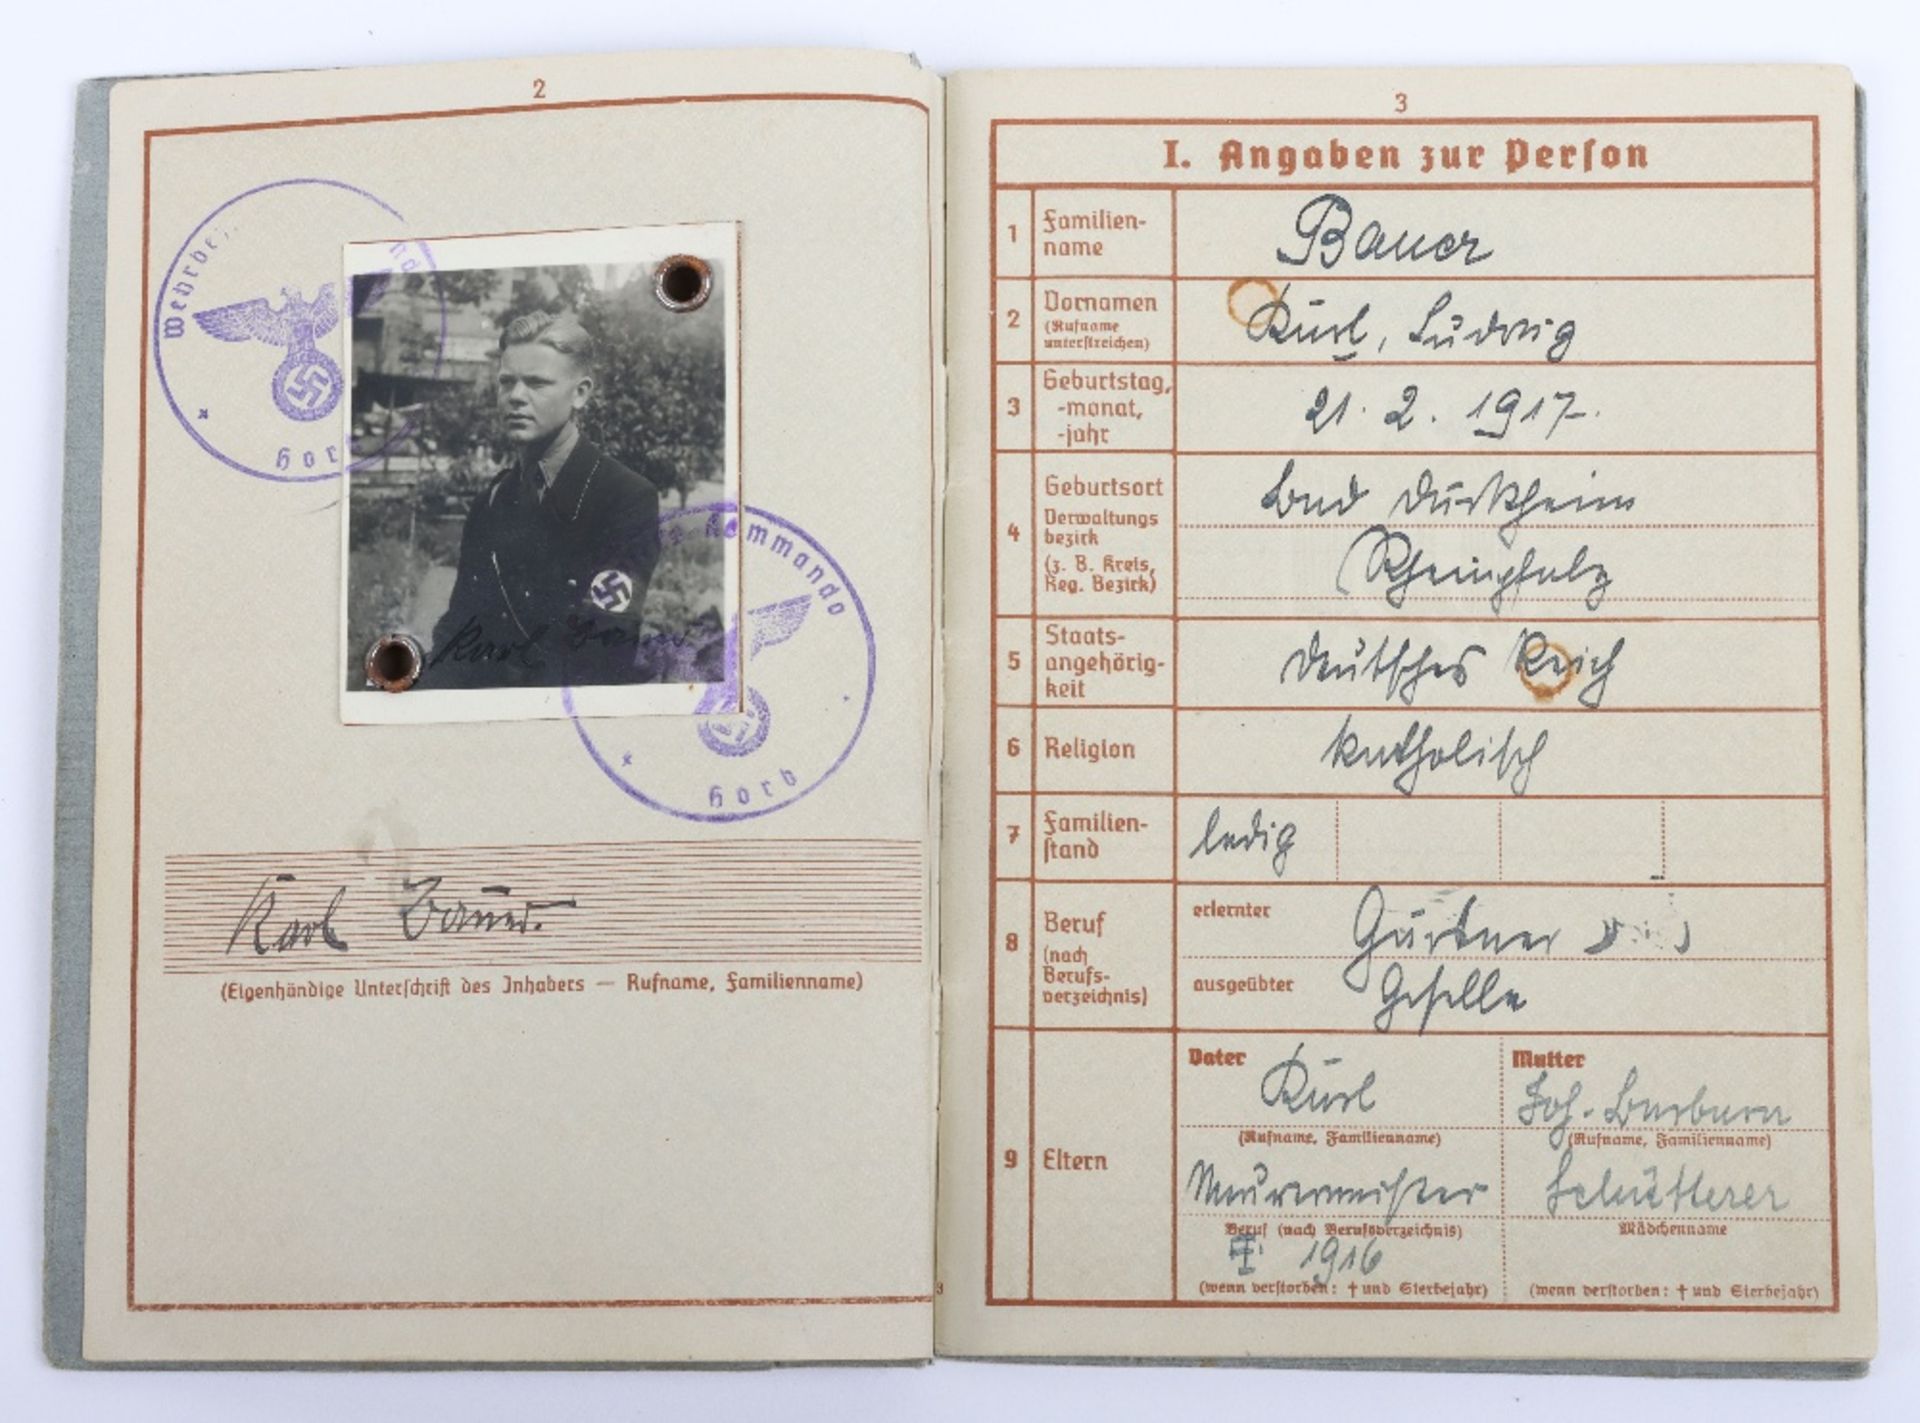 2
Horb
Kommando
Horb
Karl Bauer
Karl Bauer.
(Eigenhändige Unterschrift des Inhabers — Rufname, Familienname)
3
I. Angaben zur Person
1 Familien-
name
Bauer
2 Vornamen
(Rufname
unterstreichen)
Karl, Ludwig
3 Geburtstag,
-monat,
-jahr
21. 2. 1917.
4 Geburtsort
Verwaltungs
bezirk
(z. B. Kreis,
Reg. Bezirk)
Bad Dürkheim
Rheinpfalz
5 Staats-
angehörig-
keit
Deutsches Reich
6 Religion
katholisch
7 Familien-
stand
ledig
8 Beruf
(nach
Berufs-
verzeichnis)
erlernter
Gärtner
ausgeübter
Geselle
9 Eltern
Vater
Karl
(Rufname, Familienname)
Maurermeister
Beruf (nach Berufsverzeichnis)
1916
(wenn verstorben: † und Sterbejahr)
Mutter
Joh. Barbara
(Rufname, Familienname)
Schütterer
Mädchenname
(wenn verstorben: † und Sterbejahr)
3